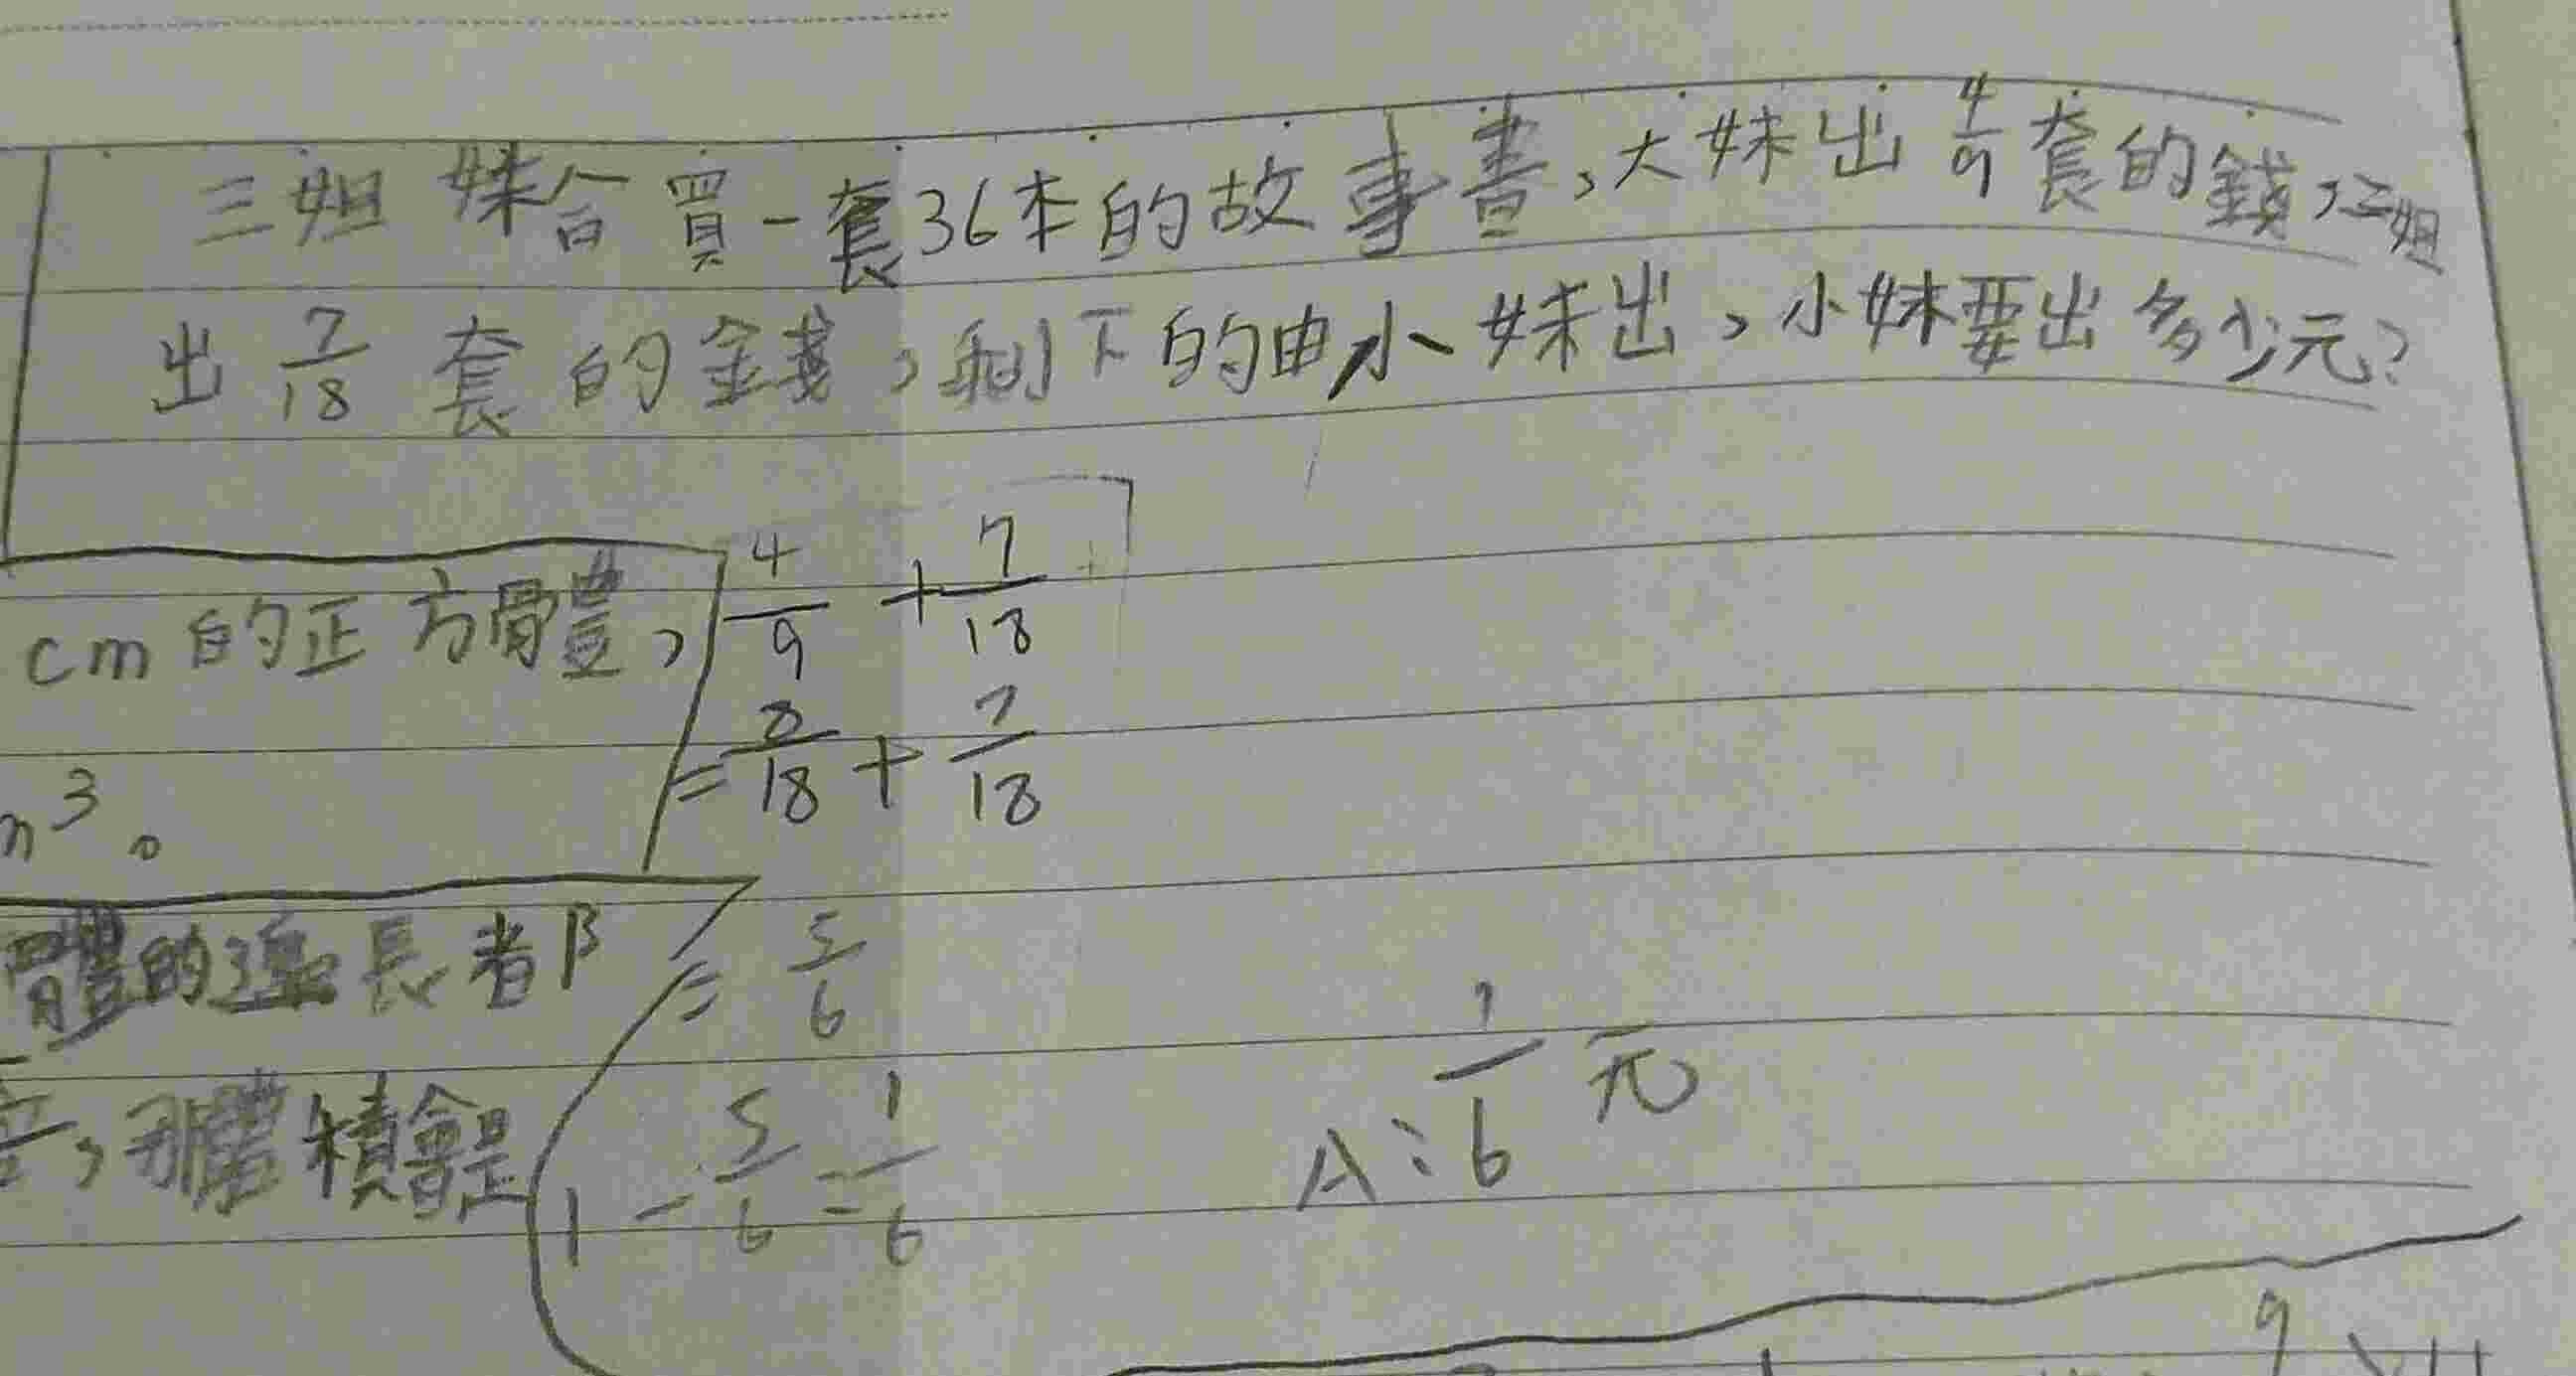 三姐妹合買一套36本的故事書,大妹出 4/9 套的錢,二姐
出 7/18 套的錢,剩下的由小妹出,小妹要出多少元?
cm的正方體, 4/9 + 7/18
= 8/18 + 7/18
³。
體的邊長都 = 5/6
A: 1/6 元
,那體積會是 1 - 5/6 = 1/6
9